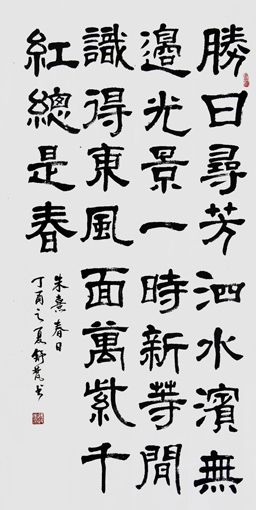 勝日尋芳泗水濱無
邊光景一時新等間
識得東風面萬紫千
紅總是春
朱熹春日
丁酉之夏舒